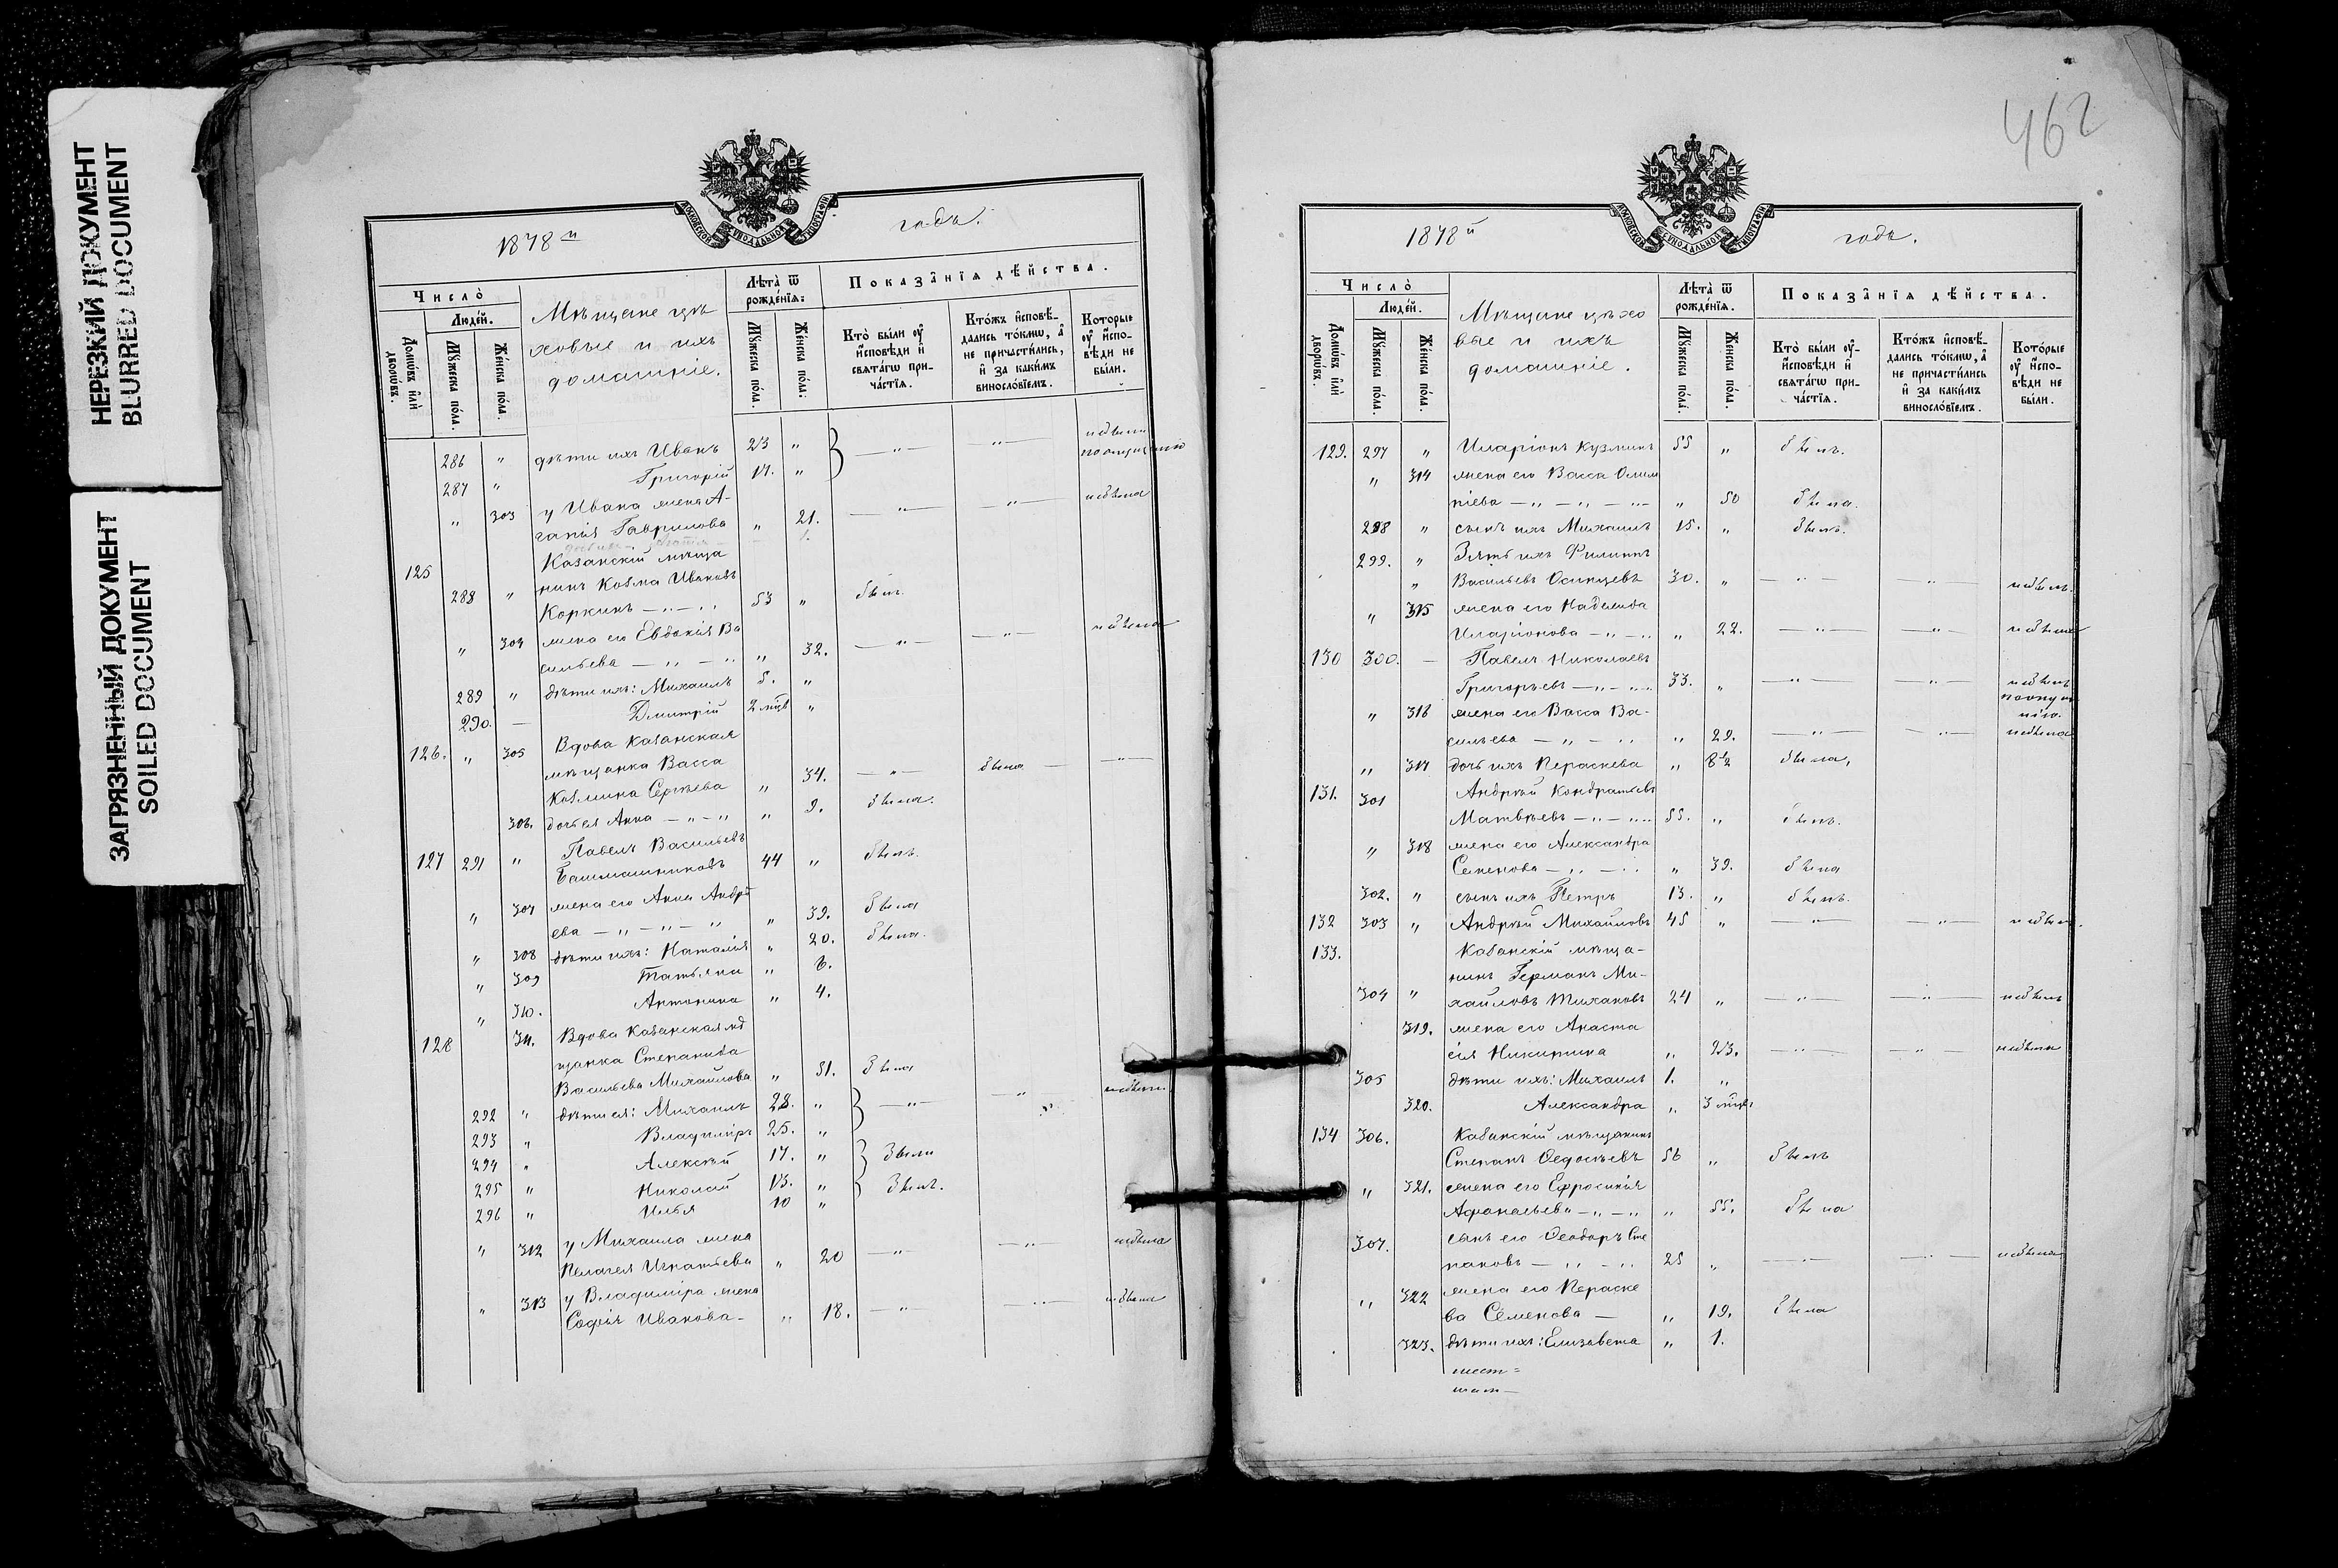 НЕРЕЗКИЙ ДОКУМЕНТ
BLURRED DOCUMENT
ЗАГРЯЗНЕННЫЙ ДОКУМЕНТ
SOILED DOCUMENT
МОСКОВСКОЙ СѴНОДАЛЬНОЙ ТИПОГРАФІИ
1878й годъ.
Число̀
Людей.
Домѡвъ и҆лѝ дворѡвъ.
Мꙋжеска пола.
Женска пола.
Мѣщане цѣ
ховые и ихъ
домашніе.
Лѣта̀ ѿ рожденїѧ:
Мꙋжеска пола.
Женска пола:
Показанїѧ дѣйства.
Кто̀ были оу҆ и҆сповѣди и҆ свѧтагѡ причастїѧ.
Ктожъ и҆сповѣдались токмѡ, а҆ не причастились, и҆ за какимъ винословїемъ.
Которые оу҆ и҆сповѣди не были.
286 " дѣти ихъ Иванъ 23 " — " — — " — небыли
287 " Григорій 17. " по опущенію
" 303 у Ивана жена А-
гапія Гаврилова " 21. — " — — " — небыла
125 Казанскій мѣща
288 " нинъ Козма Ивановъ
Коркинъ — " — " 53 " былъ.
" 304 жена его Евдокія Ва
сильева — " — " " 32. — " — — " — небыла
289 " дѣти ихъ: Михаилъ 5. "
290. — Дмитрій 2 мцв "
126. " 305 Вдова Казанская
мѣщанка Васса
Козмина Сергѣева " 34. — " — была — — " —
306. дочь ея Анна — " — " " 9. была.
127 291 " Павелъ Васильевъ
Башмашниковъ 44 " былъ.
" 307 жена его Анна Андре
ева — " — " — " " 39. была
" 308 дѣти ихъ: Наталія " 20. была.
" 309 Татьяна " 6.
" 310. Антонина " 4.
128 311. Вдова Казанская мѣ
щанка Степанида
Васильева Михайлова " 51. была
292 " дѣти ея: Михаилъ 28. " — " — " небыли.
293 " Владиміръ 25. "
294 " Алексѣй 17. " были
295 " Николай 13. " былъ.
296 " Илья 10 "
" 312 у Михаила жена
Пелагея Игнатьева " 20 — " — — " — небыла
" 313 у Владиміра жена
Софія Иванова - " 18. — " — " — небыла
462
МОСКОВСКОЙ СѴНОДАЛЬНОЙ ТИПОГРАФІИ
1878й годъ.
Число̀
Людей.
Домѡвъ и҆лѝ дворѡвъ.
Мꙋжеска пола.
Женска пола.
Мѣщане цѣхо
вые и ихъ
домашніе.
Лѣта̀ ѿ рожденїѧ.
Мꙋжеска пола.
Женска пола.
Показанїѧ дѣйства.
Кто̀ были оу҆ и҆сповѣди и҆ свѧтагѡ причастїѧ.
Ктожъ и҆сповѣдались токмѡ, а҆ не причастились и҆ за какимъ винословїемъ.
Которые оу҆ и҆сповѣди не были.
129. 297 " Иларіонъ Кузминъ 55 " былъ.
" 314 жена его Васса Олим
піева — " — " — " " 50 была.
298 " сынъ ихъ Михаилъ 15. " былъ.
299. " Зять ихъ Филиппъ
" Васильевъ Осинцевъ 30. " — " — " небылъ.
" 315 жена его Надежда
Иларіонова — " — " " 22. — " — — " небыла
130 300. — Павелъ Николаевъ
Григорьевъ — " — " 33. " — " — — " — небылъ
по опущ
нію.
" 316 жена его Васса Ва-
сильева — " — " " 29. — " — — " — небыла
" 317 дочь ихъ Пераскева " 8½ была,
131. 301 Андрей Кондратьевъ
Матвѣевъ — " — " 55. " былъ.
" 318 жена его Александра
Семенова — " — " " 39. была
302. " сынъ ихъ Петръ 13. " былъ.
132 303 " Андрей Михайловъ 45 " — " — — " — небылъ.
133. Казанскій мѣща-
нинъ Германъ Ми-
304 " хайловъ Тихановъ 24 " — " — — " — небылъ
319. жена его Анаста
сія Никитина " 23. — " — — " небыла
305 дѣти ихъ: Михаилъ 1. "
320. Александра " 3 мцв
134 306. Казанскій мѣщанинъ
Степанъ Ѳедосѣевъ 56 " былъ
" 321. жена его Ефросинія
Афанасьева — " — " " 55. была
307. сынъ его Ѳеодоръ Сте
пановъ — " — " 25 " — " — — " — небылъ
" 322 жена его Пераске
ва Семенова — " 19. была
323. дѣти ихъ: Елизавета " 1.